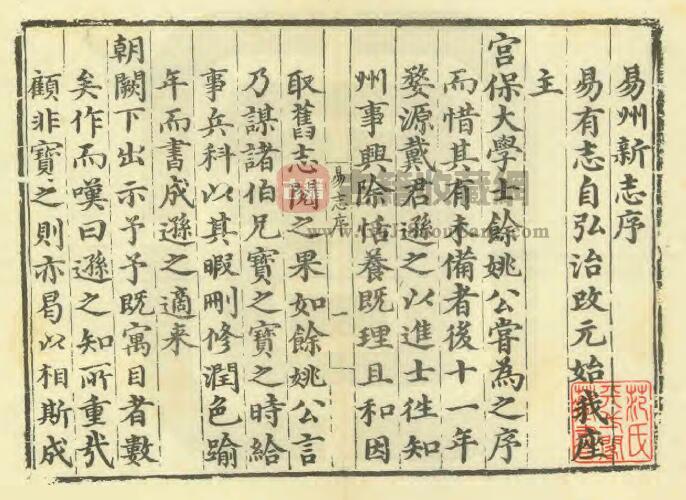 易州新志序
易有志自弘治改元始我座
主
宫保大學士餘姚公嘗為之序
而惜其有未備者後十一年
婺源戴君遜之以進士徃知
州事興除恬養既理且和因
易志序
一
取舊志閱之果如餘姚公言
乃謀諸伯兄寶之寶之時給
事兵科以其暇刪修潤色踰
年而書成遜之適来
朝闕下出示予予既寓目者數
矣作而嘆曰遜之知所重哉
顧非寶之則亦曷以相斯成
范氏
天一閣